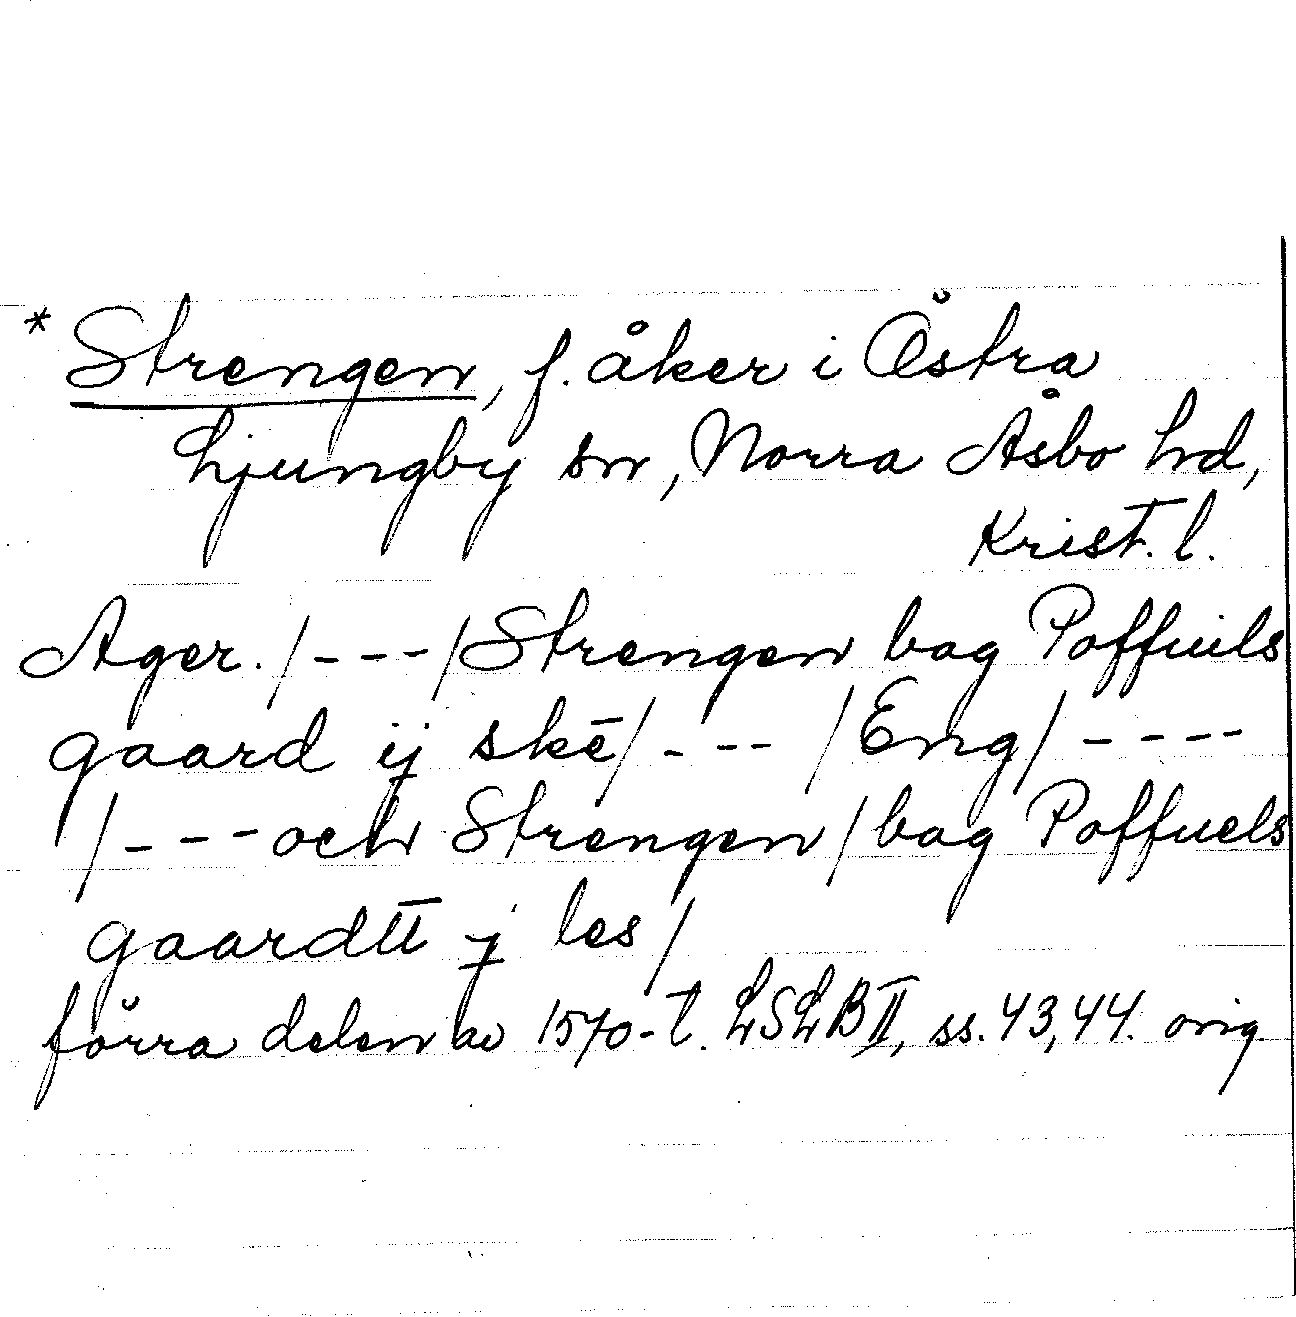 * Strengen, f. åker i Östra
Ljungby sn, Norra Åsbo hd,
Krist. l.
Ager. /---/ Strengen bag Poffuils
gaard ij skē/---/Eng/----
/---och Strengen/bag Poffuels
gaardtt j les/
förra delen av 1570-t. LSLB II, ss. 43, 44. orig